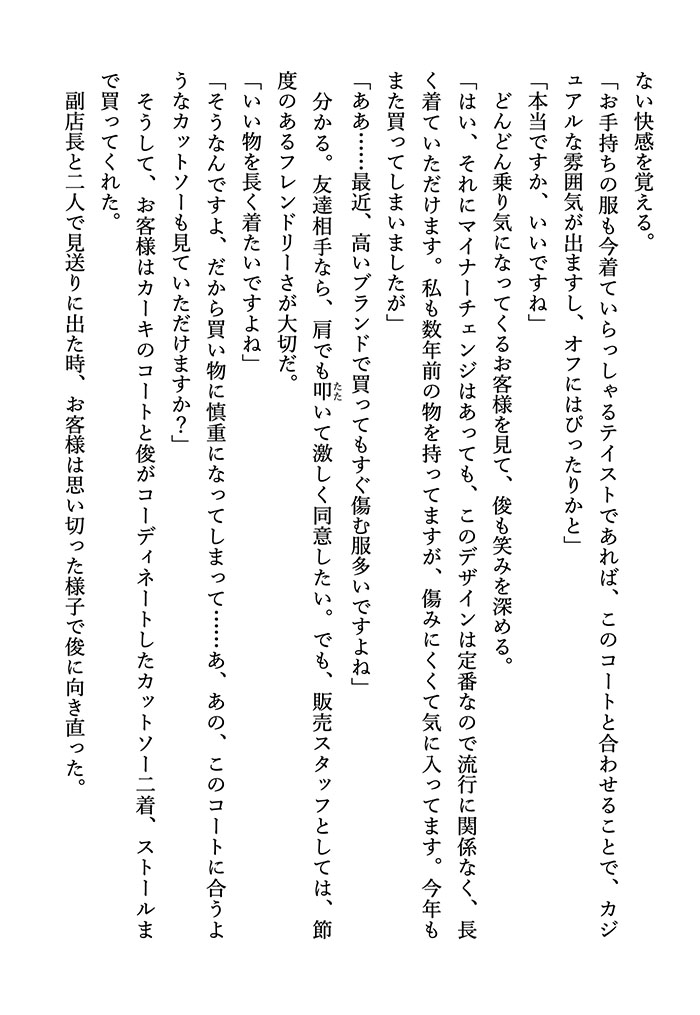 ない快感を覚える。
「お手持ちの服も今着ていらっしゃるテイストであれば、このコートと合わせることで、カジ
ュアルな雰囲気が出ますし、オフにはぴったりかと」
「本当ですか、いいですね」
　どんどん乗り気になってくるお客様を見て、俊も笑みを深める。
「はい、それにマイナーチェンジはあっても、このデザインは定番なので流行に関係なく、長
く着ていただけます。私も数年前の物を持ってますが、傷みにくくて気に入ってます。今年も
また買ってしまいましたが」
「ああ……最近、高いブランドで買ってもすぐ傷む服多いですよね」
　分かる。友達相手なら、肩でも叩たたいて激しく同意したい。でも、販売スタッフとしては、節
度のあるフレンドリーさが大切だ。
「いい物を長く着たいですよね」
「そうなんですよ、だから買い物に慎重になってしまって……あ、あの、このコートに合うよ
うなカットソーも見ていただけますか？」
　そうして、お客様はカーキのコートと俊がコーディネートしたカットソー二着、ストールま
で買ってくれた。
　副店長と二人で見送りに出た時、お客様は思い切った様子で俊に向き直った。